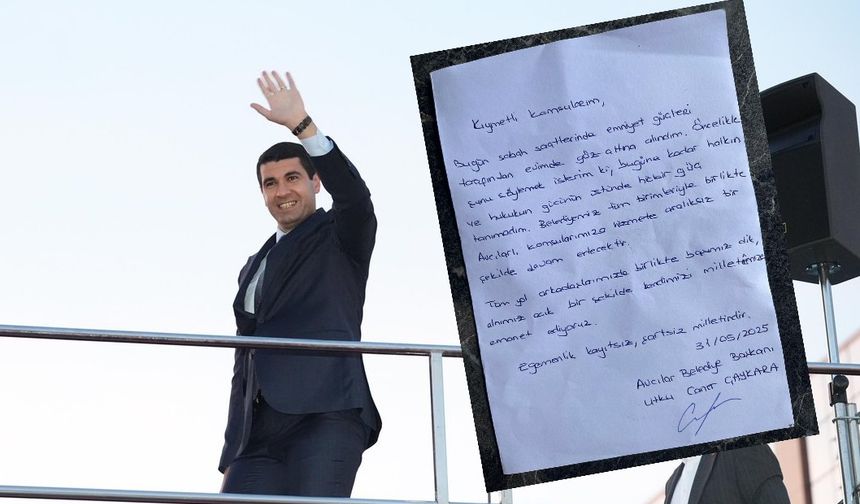 Kıymetli Komşularım,
Bugün sabah saatlerinde emniyet güçleri
tarafından evimde göz altına alındım. Öncelikle
şunu söylemek isterim ki, bugüne kadar halkın
ve hukukun gücünün üstünde hiçbir güç
tanımadım. Belediyemiz tüm birimleriyle birlikte
Avcılarlı komşularımıza hizmete aralıksız bir
şekilde devam edecektir.
Tüm yol arkadaşlarımızla birlikte başımız dik,
alnımız açık bir şekilde kendimizi milletimize
emanet ediyoruz.
Egemenlik kayıtsız, şartsız milletindir.
31/05/2025
Avcılar Belediye Başkanı
Utku Caner ÇAYKARA